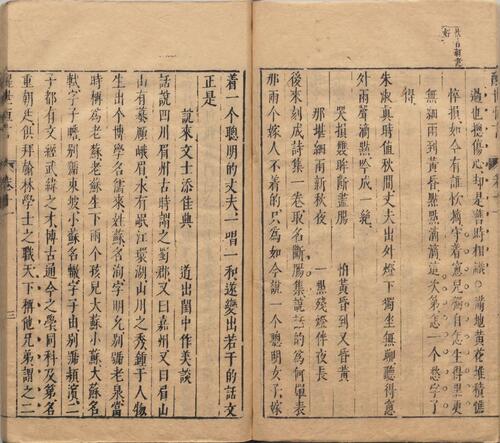 過也擾傷心却是舊時相識滿地黃花堆積憔
悴損如今有誰忺摘守着窓兒獨自怎生得黑更
兼細雨到黃昏點點滴滴這次第怎一个愁字了
得
朱淑真時值秋間丈夫出外燈下獨坐無聊聽得窓
外雨聲滴點吟成一絕
哭損雙眸斷盡腸　怕黃昏到又昏黃
那堪細雨新秋夜　一點殘燈伴夜長
後來刻成詩集一卷取名斷腸集說話的為何單表
那兩个嫁人不着的只為如今說一个聰明女子嫁
着一个聰明的丈夫一唱一和遂變出若干的話文
正是
說來文士添佳典　道出閨中作美談
話說四川眉州古時謂之蜀郡又曰嘉州又曰眉山
山有蟇頤峨眉水有岷江環湖山川之秀鍾于人物
生出个博學名儒來姓蘇名洵字明允別號老泉當
時稱為老蘇老蘇生下兩个孩兒大蘇小蘇大蘇名
軾字子瞻別號東坡小蘇名轍字子由別號潁濱二
子都有文經武緯之才博古通今之學同科及第名
重朝廷俱拜翰林學士之職天下稱他兄弟謂之二